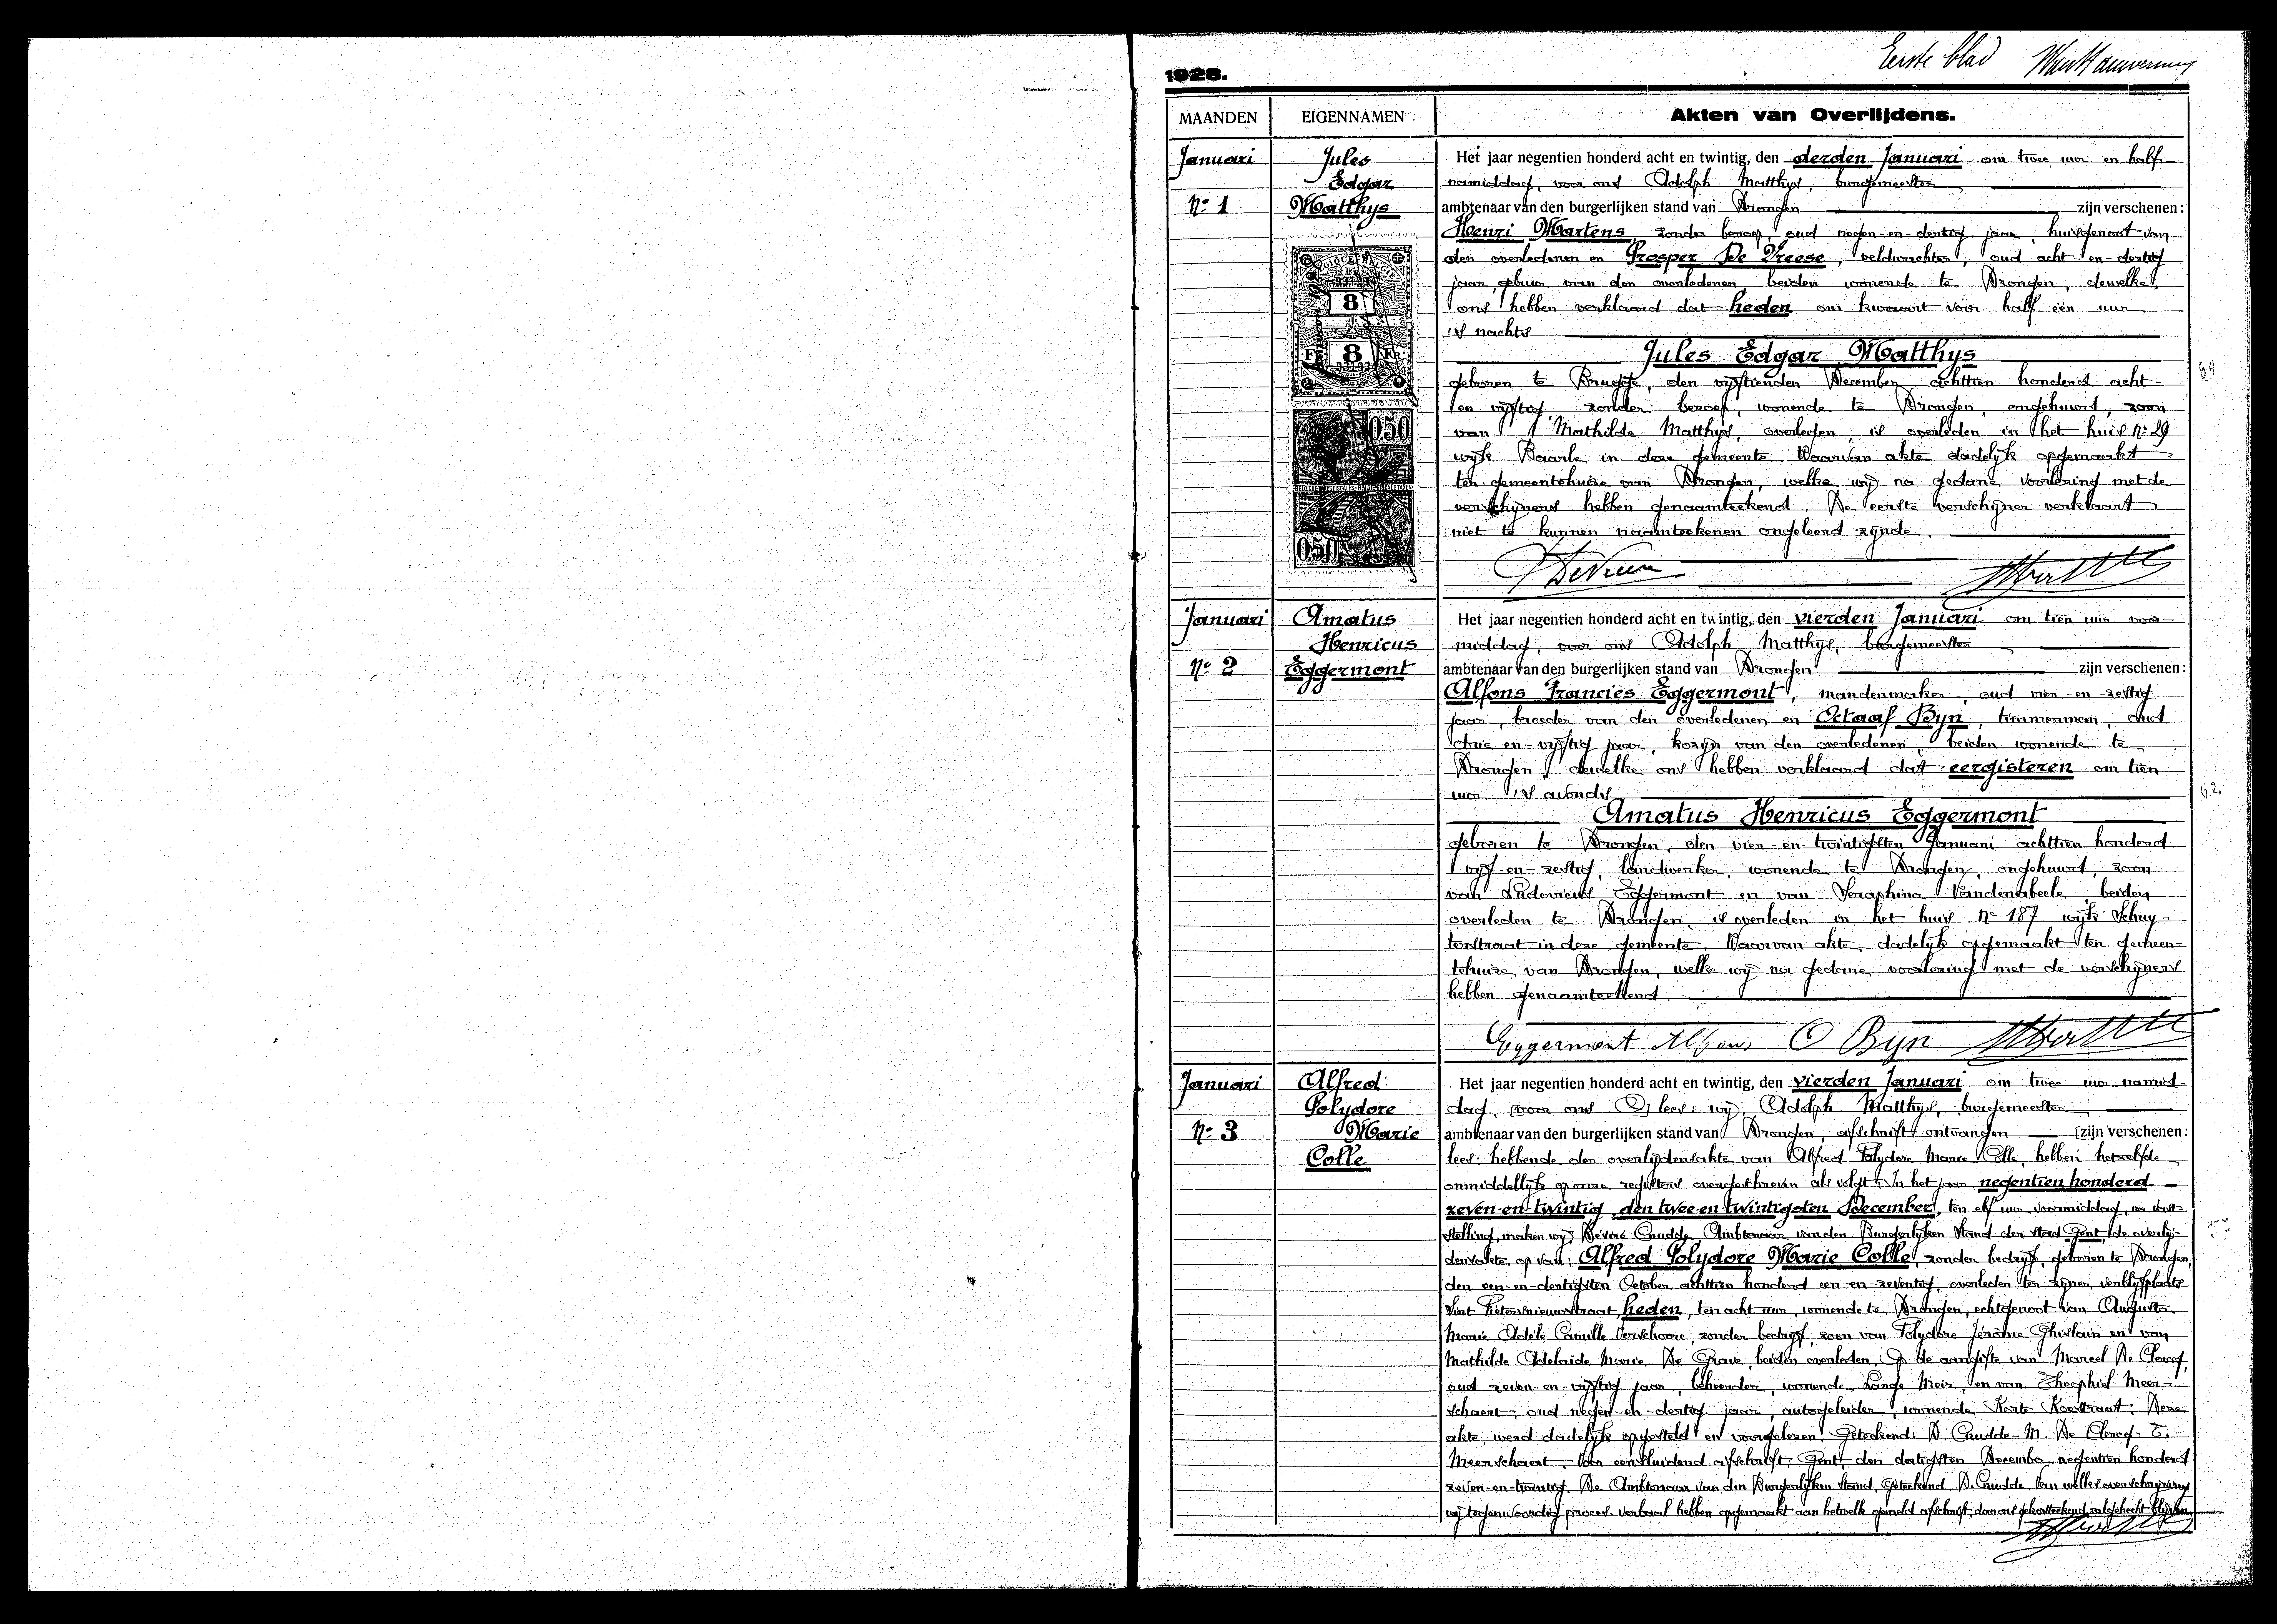 Eerste blad
1928.
MAANDEN EIGENNAMEN Akten van Overlijdens.
Januari
N° 1
Jules
Edgar
Matthys
8
Fr. 8 Fr.
0.50
0.50
Het jaar negentien honderd acht en twintig, den derden Januari om twee uur en half
namiddag, voor ons Adolph Matthys, burgemeester,
ambtenaar van den burgerlijken stand van Drongen zijn verschenen:
Henri Martens, zonder beroep, oud negen-en-dertig jaar, huisgenoot van
den overledenen en Prosper De Vreese, veldwachter, oud acht-en-dertig
jaar, gebuur van den overledenen, beiden wonende te Drongen, dewelke
ons hebben verklaard dat heden om kwaart vóór half één uur
's nachts
Jules Edgar Matthys
geboren te Brugge, den vijftienden December achttien honderd acht-
en vijftig, zonder beroep, wonende te Drongen, ongehuwd, zoon
van Mathilde Matthys, overleden, is overleden in het huis N° 29
wijk Baarle in deze gemeente. Waarvan akte dadelijk opgemaakt
ten gemeentehuize van Drongen, welke wij na gedane voorlezing met de
verschijners hebben genaamteekend. De eerste verschijner verklaart
niet te kunnen naamteekenen ongeleerd zijnde.
64
Januari
N° 2
Amatus
Henricus
Eggermont
Het jaar negentien honderd acht en twintig, den vierden Januari om tien uur voor-
middag, voor ons Adolph Matthys, burgemeester
ambtenaar van den burgerlijken stand van Drongen zijn verschenen:
Alfons Francies Eggermont, mandenmaker, oud vier-en-zestig
jaar, broeder van den overledenen en Octaaf Byn, timmerman, oud
drie-en-vijftig jaar, kozijn van den overledenen, beiden wonende te
Drongen, dewelke ons hebben verklaard dat eergisteren om tien
uur 's avonds
Amatus Henricus Eggermont
geboren te Drongen, den vier-en-twintigsten Januari achttien honderd
vijf-en-zestig, landwerker, wonende te Drongen, ongehuwd, zoon
van Ludovicus Eggermont en van Seraphina Vandenabeele, beiden
overleden te Drongen, is overleden in het huis N° 187 wijk Schuy-
terstraat in deze gemeente. Waarvan akte, dadelijk opgemaakt ten gemeen-
tehuize van Drongen, welke wij na gedane voorlezing met de verschijners
hebben genaamteekend.
Eggermont Alfons O Byn
62
Januari
N° 3
Alfred
Polydore
Marie
Colle
Het jaar negentien honderd acht en twintig, den vierden Januari om twee uur namid-
dag, voor ons lees: wij, Adolph Matthys, burgemeester
ambtenaar van den burgerlijken stand van Drongen, afschrift ontvangen [zijn verschenen:
lees: hebbende der overlijdensakte van Alfred Polydore Marie Colle, hebben hetzelfde
onmiddellijk op onze registers overgeschreven als volgt: In het jaar negentien honderd
zeven-en-twintig, den twee-en-twintigsten December, ten elf uur voormiddag, na vast-
stelling, maken wij, Désiré Cnudde, Ambtenaar van den Burgerlijken Stand der stad Gent, de overlij-
densakte op van: Alfred Polydore Marie Colle, zonder bedrijf, geboren te Drongen,
den een-en-dertigsten October achttien honderd een-en-zeventig, overleden ten zijnen verblijfplaats
Sint Pietersnieuwstraat, heden, ten acht uur, wonende te Drongen, echtgenoot van Augusta
Marie Adèle Camille Verschoore, zonder bedrijf, zoon van Polydore Jérôme Ghislain en van
Mathilde Adelaide Marie De Grave, beiden overleden. Op de aangifte van Marcel De Clercq,
oud zeven-en-vijftig jaar, beheerder, wonende Lange Meir, en van Theophiel Meer-
schaert, oud negen-en-dertig jaar, autogeleider, wonende Korte Koestraat. Deze
akte, werd dadelijk opgesteld en voorgelezen. Geteekend: D. Cnudde - M. De Clercq - T.
Meerschaert. Voor eensluidend afschrift. Gent, den dertigsten December negentien honderd
zeven-en-twintig. De Ambtenaar van den Burgerlijken Stand, Geteekend D. Cnudde. Van welke overschrijving
wij tegenwoordig proces-verbaal hebben opgemaakt aan hetwelk gemeld afschrift, door ons gekortteekend, zal gehecht blijven.